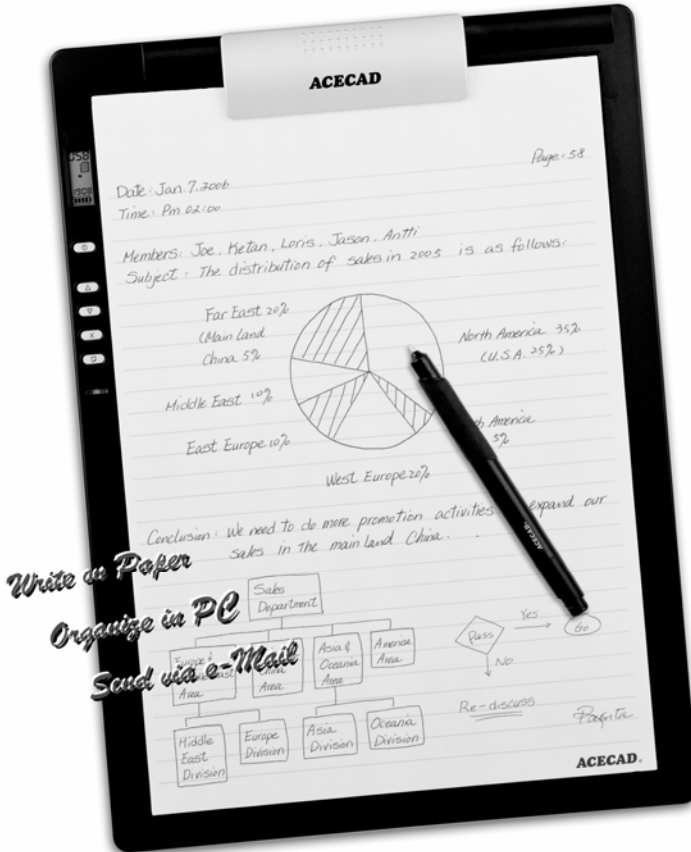 ACECAD
058
Page: 58
Date: Jan. 7. 2006
Time: Pm 02:00
Members: Joe, Ketan, Loris, Jason, Antti
Subject: The distribution of sales in 2005 is as follows:
Far East 20%
(Main Land
China 5%
North America 35%
(U.S.A. 25%)
Middle East 10%
America
5%
East Europe 10%
West Europe 20%
Conclusion: We need to do more promotion activities expand our
sales in the main land China.
Write on Paper
Organize in PC
Send via e-Mail
Sales
Department
Europe &
Area
China
Area
Asia &
Oceania
Area
America
Area
Middle
East
Division
Europe
Division
Asia
Division
Oceania
Division
Pass
Yes
Go
No
Re-discuss
ACECAD
ACECAD.